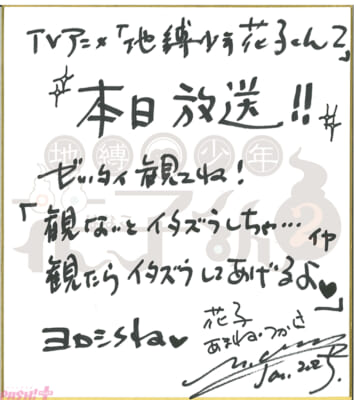 TVアニメ「地縛少年花子くん2」
本日放送!!
地縛少年
花子くん2
ぜッタイ観てね!
「観ないとイタズラしちゃ…イヤ
観たらイタズラしてあげるよ♥」
ヨロシsね♥
花子
あまね・つかさ
Jan. 2025.
PASH!+